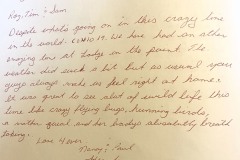 Ray, Kim & Sam
Despite what's going on in this crazy time
in the world - COVID 19. We have had an other
amazing time at Lodge on the Point. The
weather did suck a bit but as usual you
guys always make us feel right at home.
It was great to see alot of wild life this
time like crazy flying bugs, hunning birds,
a nother great and her babys absolutly breath
taking.
Love 4 ever,
Nancy & Paul